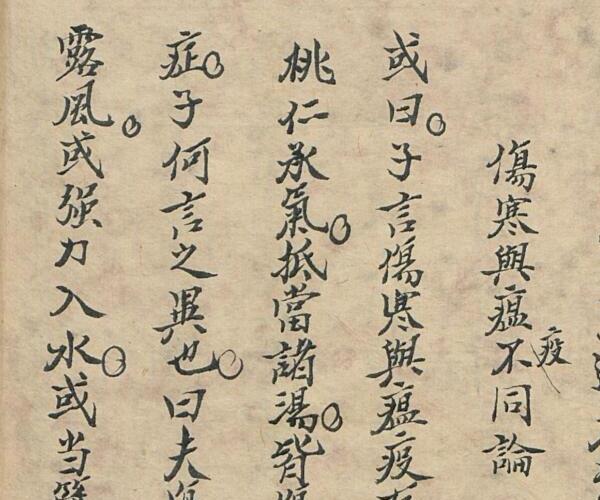 傷寒與瘟疫不同論
或曰。子言傷寒與瘟疫
桃仁承氣。抵當諸湯。皆
症。子何言之異也。曰夫
露風。或强力入水。或当